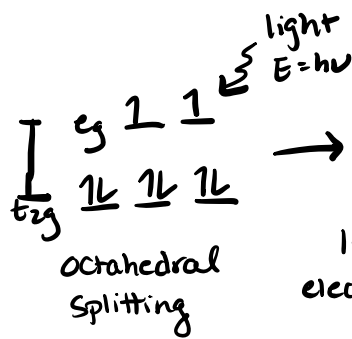 light
E=hν
eg 1 1
t2g 1L 1L 1L
octahedral
splitting